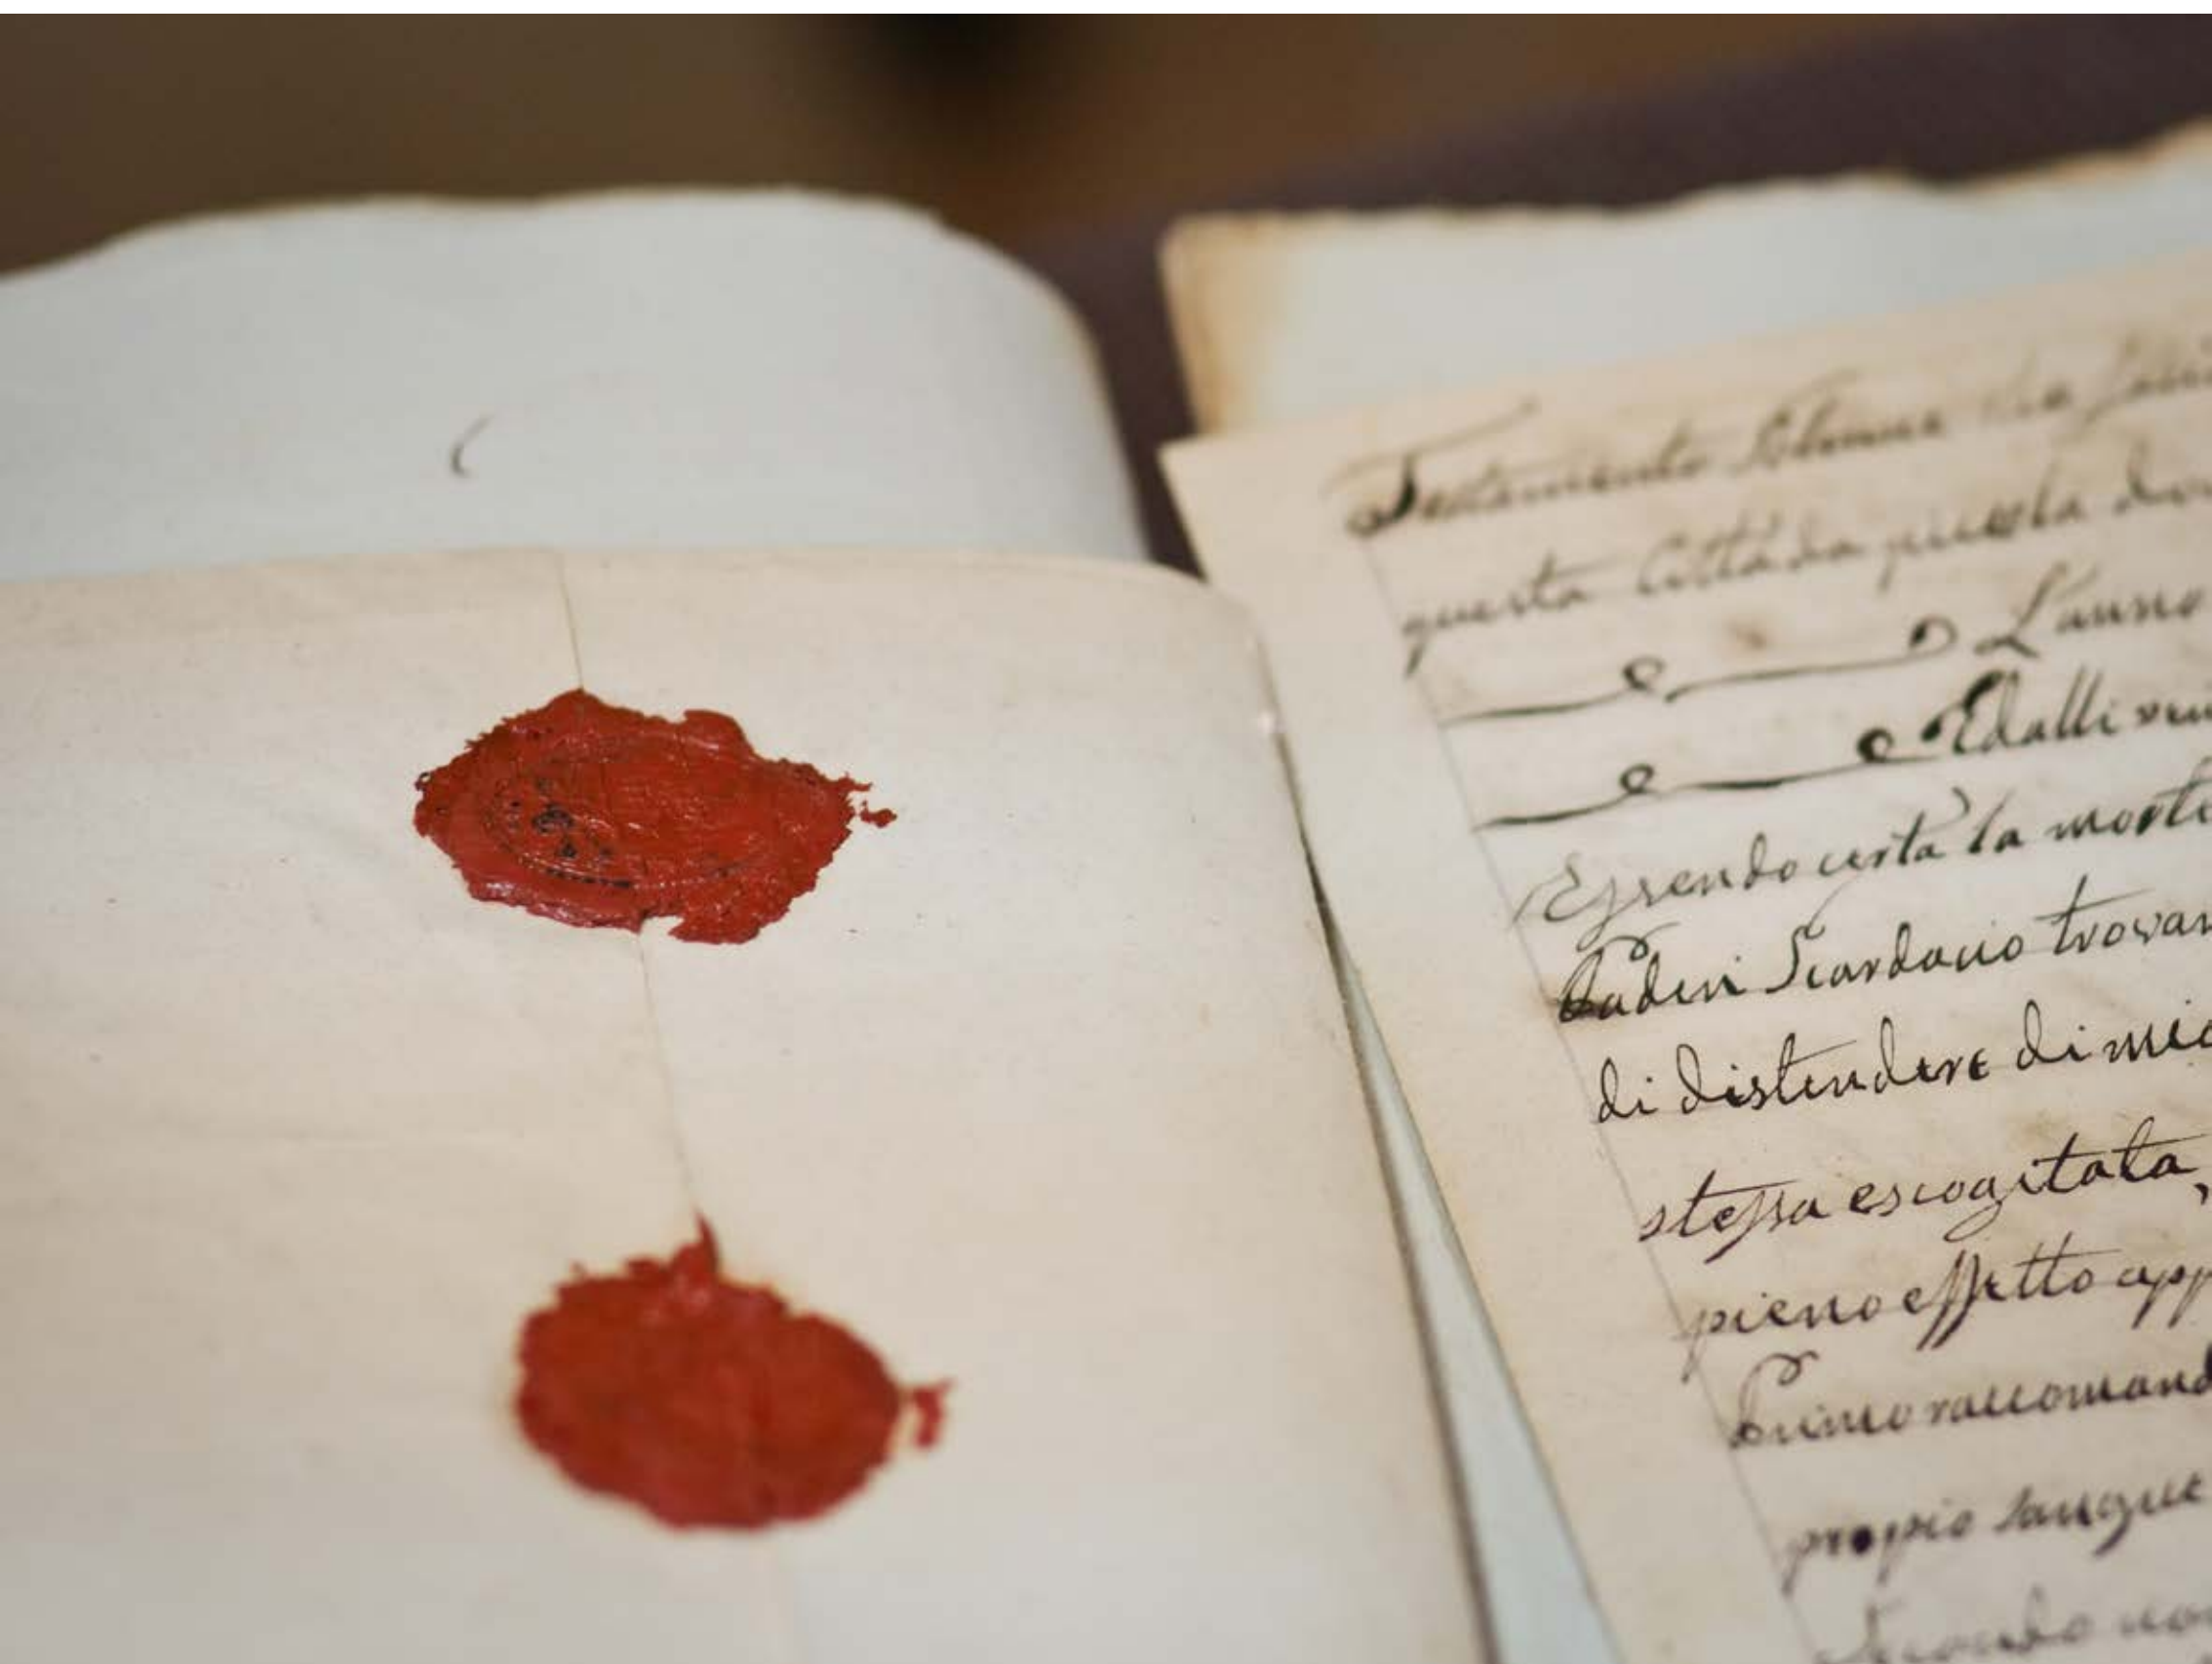 Testamento
questa Città da
L'anno
Edalli
Essendo certa la morte
Scardacio trovan
di distendere di mio
stessa escogitata,
pieno effetto app
Primo raccomand
propio sangue
Secondo